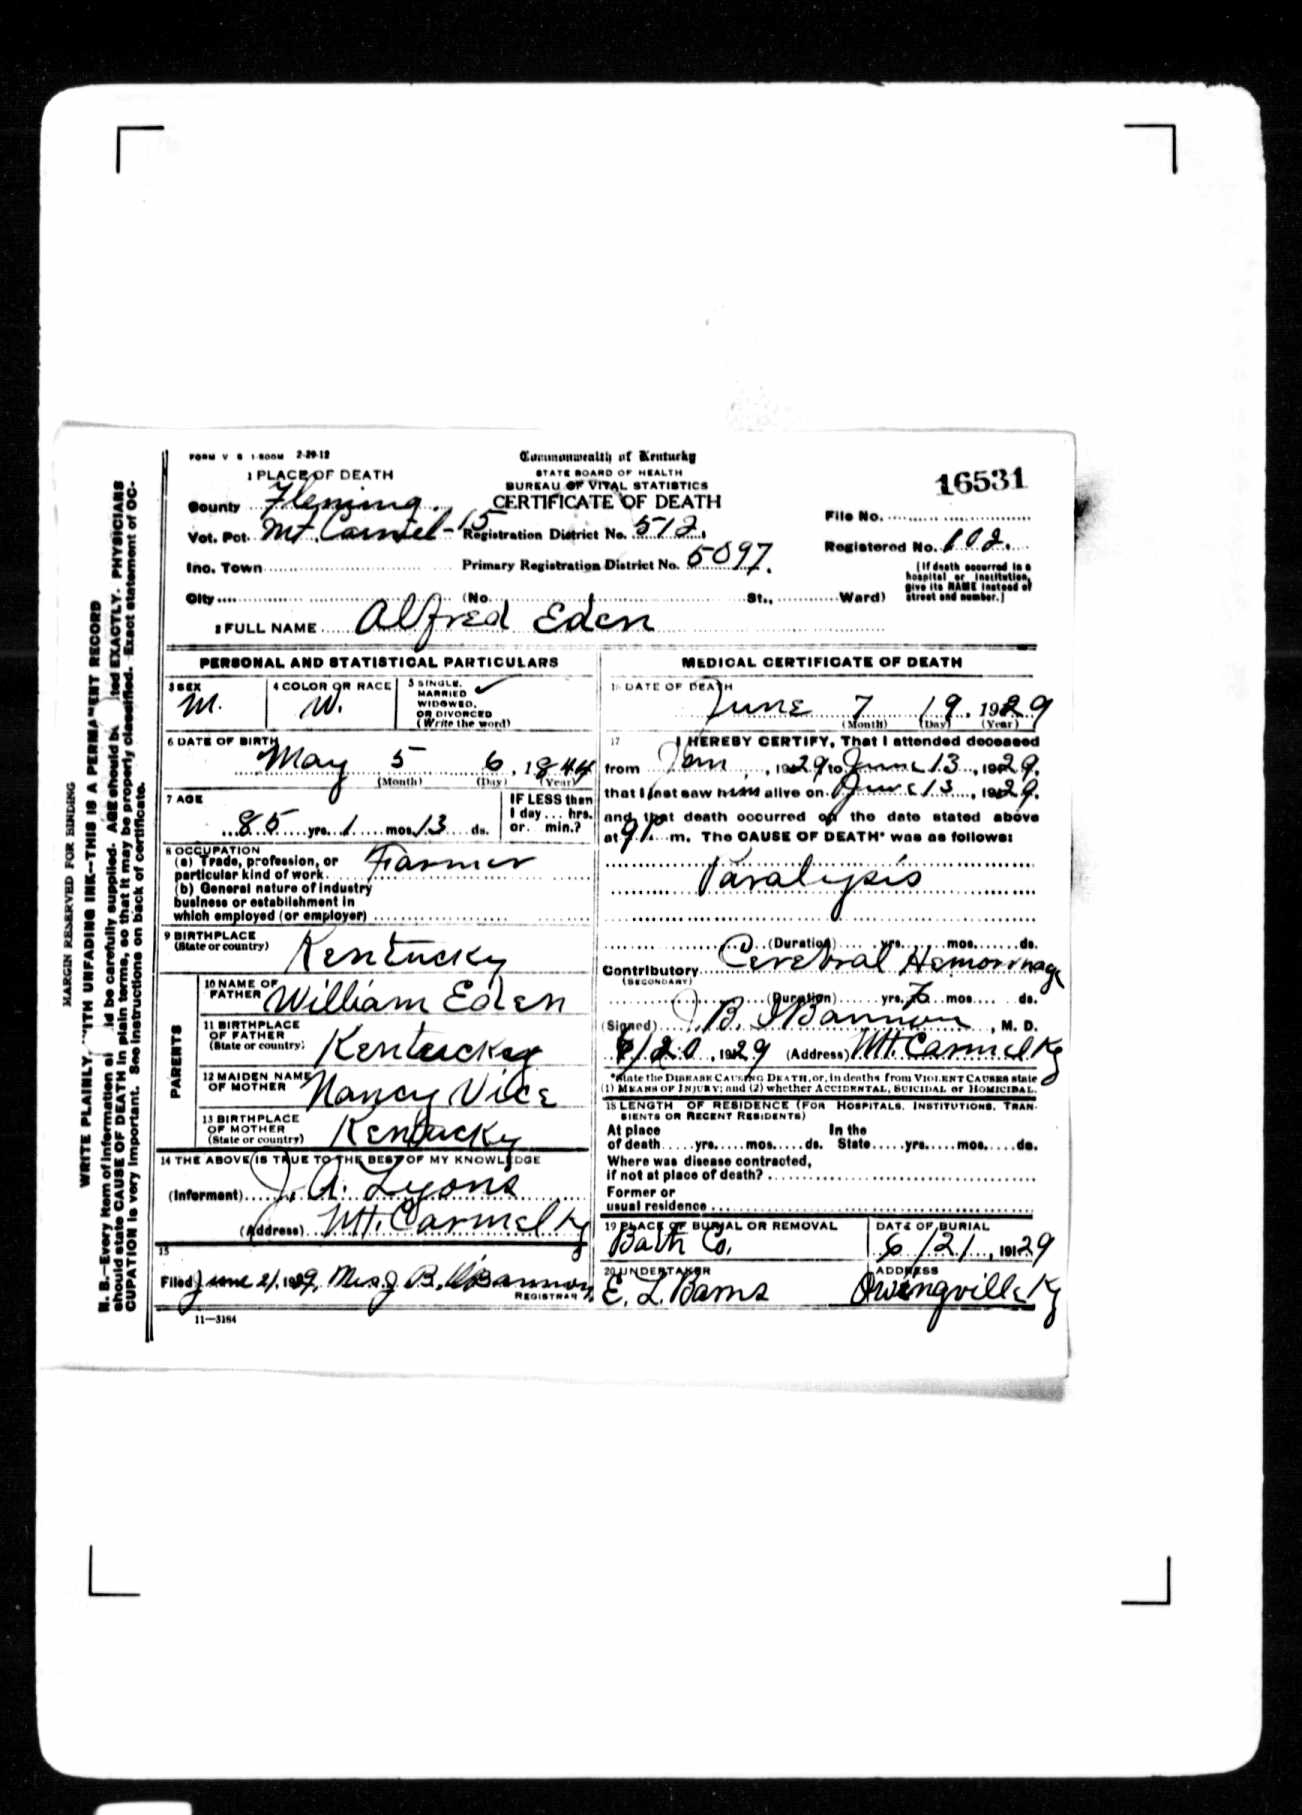 FORM V S 1-500M 2-29-12
Commonwealth of Kentucky
STATE BOARD OF HEALTH
BUREAU OF VITAL STATISTICS
CERTIFICATE OF DEATH
16531
1 PLACE OF DEATH
County Fleming
Vot. Pct. Mt. Carmel-15 Registration District No. 512.
File No.
Registered No. 102.
Inc. Town Primary Registration District No. 5097.
City (No. St., Ward)
(If death occurred in a hospital or institution, give its NAME instead of street and number.)
2 FULL NAME Alfred Eden
PERSONAL AND STATISTICAL PARTICULARS
3 SEX M.
4 COLOR OR RACE W.
5 SINGLE, MARRIED WIDOWED, OR DIVORCED (Write the word)
6 DATE OF BIRTH
May 5 6, 1844
(Month) (Day) (Year)
7 AGE
85 yrs. 1 mos. 13 ds.
IF LESS than 1 day ... hrs. or ... min.?
8 OCCUPATION
(a) Trade, profession, or particular kind of work. Farmer
(b) General nature of industry business or establishment in which employed (or employer)
9 BIRTHPLACE
(State or country) Kentucky
PARENTS
10 NAME OF FATHER William Eden
11 BIRTHPLACE OF FATHER (State or country) Kentuckey
12 MAIDEN NAME OF MOTHER Nancy Vice
13 BIRTHPLACE OF MOTHER (State or country) Kentucky
14 THE ABOVE IS TRUE TO THE BEST OF MY KNOWLEDGE
(Informant) J. A. Lyons
(Address) Mt. Carmel Ky
15
Filed June 21, 1929, B.
REGISTRAR
11-3184
MEDICAL CERTIFICATE OF DEATH
16 DATE OF DEATH
June 7 19, 1929
(Month) (Day) (Year)
17 I HEREBY CERTIFY, That I attended deceased
from , 1929 to June 13, 1929,
that I last saw him alive on June 13, 1929,
and that death occurred on the date stated above
at m. The CAUSE OF DEATH* was as follows:
Paralysis
(Duration) yrs. mos. ds.
Contributory Cerebral Hemorrhage
(SECONDARY)
(Duration) yrs. mos. ds.
(Signed) J. B. , M. D.
6/20, 1929 (Address) Mt. Carmel Ky
*State the DISEASE CAUSING DEATH, or, in deaths from VIOLENT CAUSES state
(1) MEANS OF INJURY; and (2) whether ACCIDENTAL, SUICIDAL or HOMICIDAL.
18 LENGTH OF RESIDENCE (FOR HOSPITALS, INSTITUTIONS, TRANSIENTS OR RECENT RESIDENTS)
At place In the
of death yrs. mos. ds. State yrs. mos. ds.
Where was disease contracted,
if not at place of death?
Former or
usual residence
19 PLACE OF BURIAL OR REMOVAL
Bath Co.
DATE OF BURIAL
6/21, 1929
20 UNDERTAKER
E. L. Barns
ADDRESS
Owingville Ky
MARGIN RESERVED FOR BINDING
WRITE PLAINLY, WITH UNFADING INK--THIS IS A PERMANENT RECORD
N. B.--Every item of information should be carefully supplied. AGE should be stated EXACTLY. PHYSICIANS
should state CAUSE OF DEATH in plain terms, so that it may be properly classified. Exact statement of OC-
CUPATION is very important. See instructions on back of certificate.